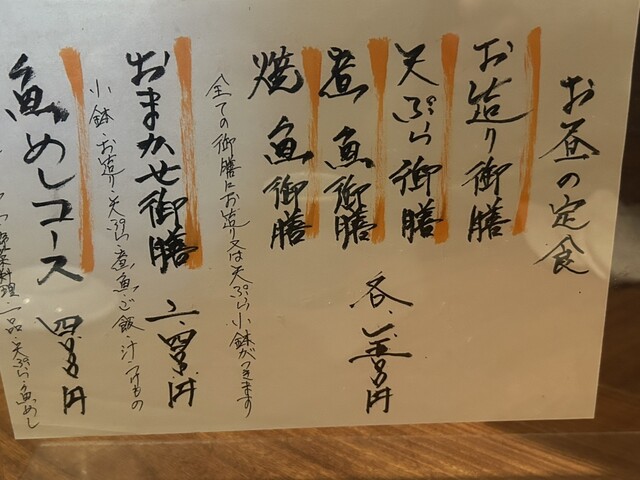 お昼の定食
お造り御膳
天ぷら御膳
煮魚御膳
焼魚御膳
各、 円
全ての御膳にお造り又は天ぷら小鉢がつきます
おまかせ御膳 円
小鉢・お造り・天ぷら・煮魚・ご飯・汁・つけもの
魚めしコース 円
野菜料理・一品・天ぷら・魚めし